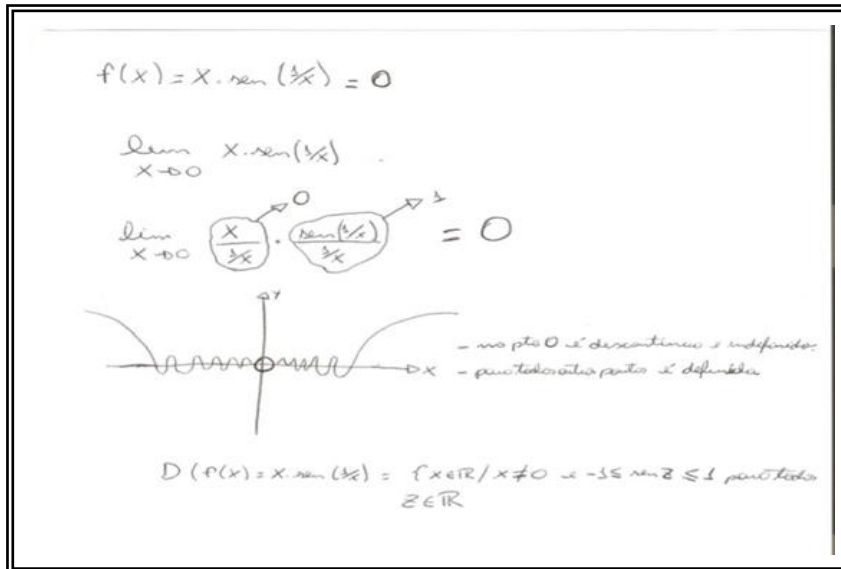 f(x) = x . sen (1/x) = 0
lim x→0 x . sen (1/x)
lim x→0 x / 1/x → 0 . sen (1/x) / 1/x → 1 = 0
y
- no pto 0 é descontínua e indefinida.
x - para todos outros pontos é definida
D (f(x) = x . sen (1/x) = {x ∈ ℝ / x ≠ 0 e -1 ≤ sen z ≤ 1 para todo
z ∈ ℝ